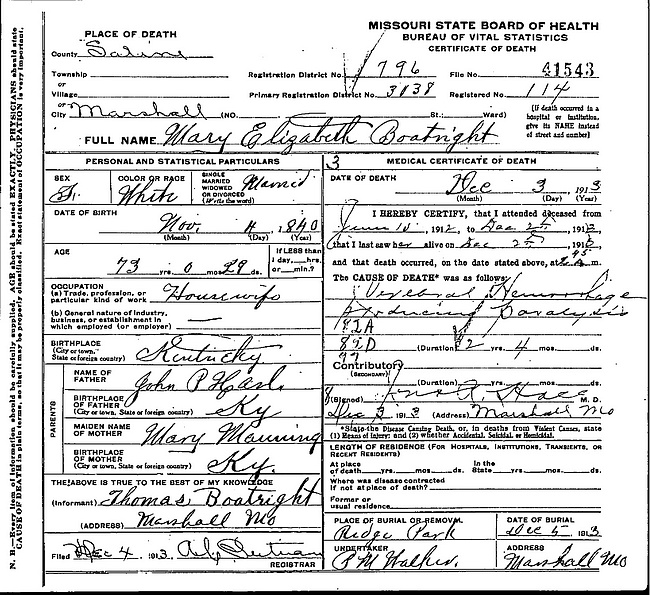 MISSOURI STATE BOARD OF HEALTH
BUREAU OF VITAL STATISTICS
CERTIFICATE OF DEATH
PLACE OF DEATH
County Saline
Township
or
Village
or
City Marshall (NO. St.; Ward)
Registration District No. 796 File No. 41543
Primary Registration District No. 3038 Registered No. 114
(If death occurred in a
hospital or institution,
give its NAME instead
of street and number)
FULL NAME Mary Elizabeth Boatright
PERSONAL AND STATISTICAL PARTICULARS
SEX
F.
COLOR OR RACE
White
SINGLE
MARRIED
WIDOWED
OR DIVORCED
(Write the word)
Married
DATE OF BIRTH
Nov. 4, 1840
(Month) (Day) (Year)
AGE
73 yrs. 0 mos. 29 ds.
If LESS than
1 day, hrs.
or min.?
OCCUPATION
(a) Trade, profession, or
particular kind of work Housewife
(b) General nature of industry,
business, or establishment in
which employed (or employer)
BIRTHPLACE
(City or town,
State or foreign country) Kentucky
PARENTS
NAME OF
FATHER John P
BIRTHPLACE
OF FATHER
(City or town, State or foreign country) Ky
MAIDEN NAME
OF MOTHER Mary Manning
BIRTHPLACE
OF MOTHER
(City or town, State or foreign country) Ky.
THE ABOVE IS TRUE TO THE BEST OF MY KNOWLEDGE
(Informant) Thomas Boatright
(ADDRESS) Marshall Mo
Filed Dec 4, 1913,
REGISTRAR
3
MEDICAL CERTIFICATE OF DEATH
DATE OF DEATH
Dec 3, 1913
(Month) (Day) (Year)
I HEREBY CERTIFY, that I attended deceased from
June 10, 1912, to Dec 2, 191
that I last saw her alive on Dec 2, 191
and that death occurred, on the date stated above, at m.
The CAUSE OF DEATH* was as follows:
Cerebral Hemorrhage
producing Paralysis
82A
82D
97
(Duration) 2 yrs. 4 mos. ds.
Contributory
(SECONDARY)
(Duration) yrs. mos. ds.
(Signed) M. D.
Dec 3, 1913 (Address) Marshall Mo
*State the Disease Causing Death, or, in deaths from Violent Causes, state
(1) Means of injury; and (2) whether Accidental, Suicidal, or Homicidal.
LENGTH OF RESIDENCE (FOR HOSPITALS, INSTITUTIONS, TRANSIENTS, OR
RECENT RESIDENTS)
At place
of death yrs. mos. ds.
In the
State yrs. mos. ds.
Where was disease contracted
if not at place of death?
Former or
usual residence
PLACE OF BURIAL OR REMOVAL
Ridge Park
DATE OF BURIAL
Dec 5, 1913
UNDERTAKER
P M Walker.
ADDRESS
Marshall Mo
N. B.—Every item of information should be carefully supplied. AGE should be stated EXACTLY. PHYSICIANS should state
CAUSE OF DEATH in plain terms, so that it may be properly classified. Exact statement of OCCUPATION is very important.